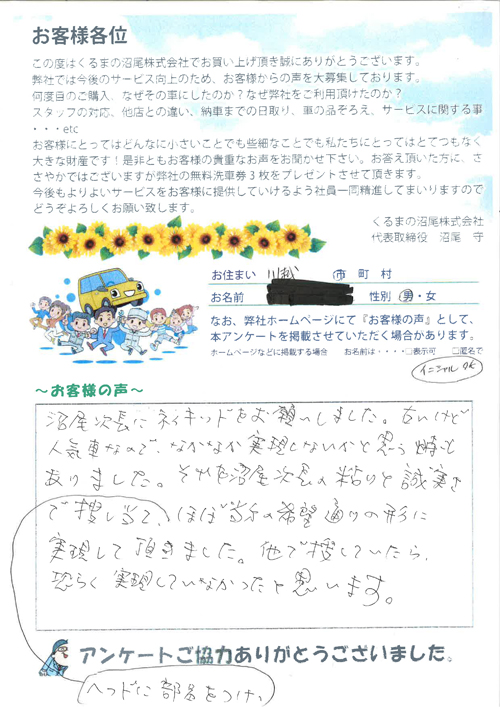 お客様各位
この度はくるまの沼尾株式会社でお買い上げ頂き誠にありがとうございます。
弊社では今後のサービス向上のため、お客様からの声を大募集しております。
何度目のご購入、なぜその車にしたのか？なぜ弊社をご利用頂けたのか？
スタッフの対応、他店との違い、納車までの日取り、車の品ぞろえ、サービスに関する事
・・・etc
お客様にとってはどんなに小さいことでも些細なことでも私たちにとってはとてつもなく
大きな財産です！是非ともお客様の貴重なお声をお聞かせ下さい。お答え頂いた方に、さ
さやかではございますが弊社の無料洗車券3枚をプレゼントさせて頂きます。
今後もよりよいサービスをお客様に提供していけるよう社員一同精進してまいりますので
どうぞよろしくお願い致します。
くるまの沼尾株式会社
代表取締役 沼尾 守
お住まい 川越 市 町 村
お名前 性別 男・女
なお、弊社ホームページにて『お客様の声』として、
本アンケートを掲載させていただく場合があります。
ホームページなどに掲載する場合 お名前は・・・・□表示可 □匿名で
イニシャルOK
～お客様の声～
沼尾次長にネイキッドをお願いしました。古いけど
人気車なので、なかなか実現しないかと思う時も
ありました。それを沼尾次長の粘りと誠実さ
で捜し当て、ほぼ当方の希望通りの形に
実現して頂きました。他で捜していたら、
恐らく実現していなかったと思います。
アンケートご協力ありがとうございました。
ヘッドに部品をつけ、